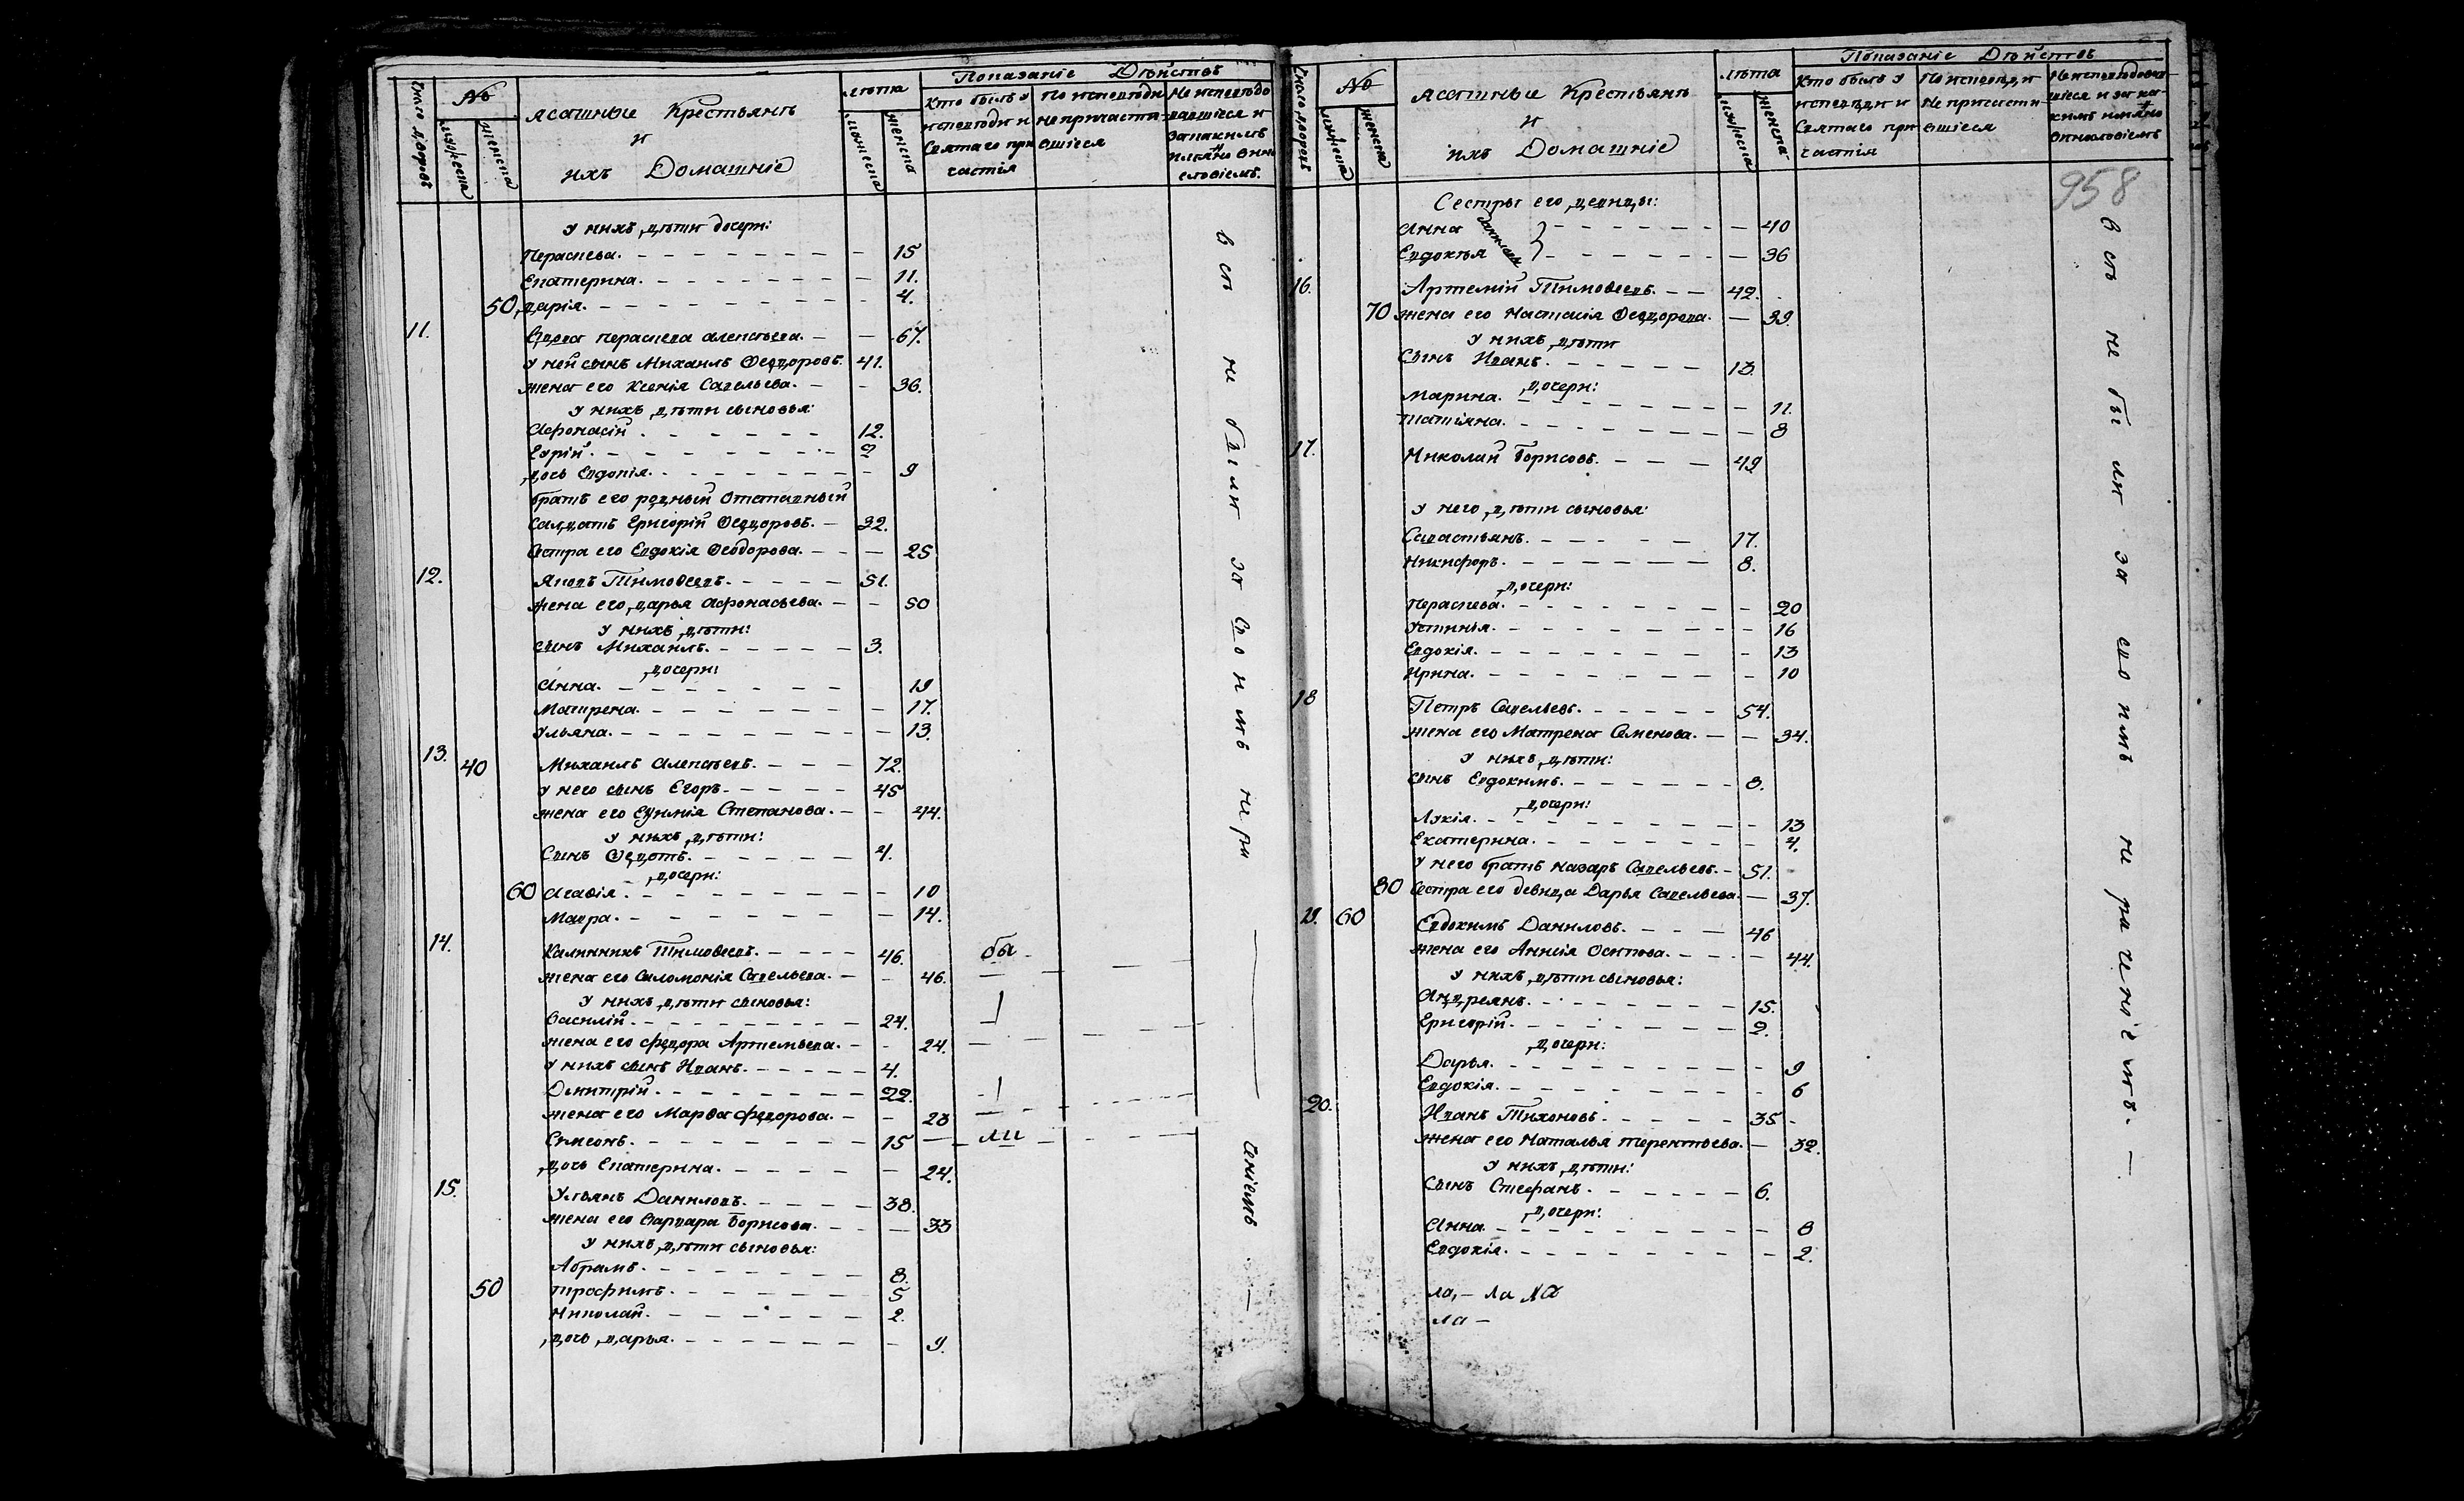 Число дворовъ
№
мужеска
женска
ясашные Крестьянѣ
и
ихъ Домашніе
лѣта
мужеска
женска
Показаніе Дѣйствъ
Кто былъ у исповѣди и Святаго причастія
По исповѣди не причастившіеся
Не исповѣдовавшіеся и за какимъ имяно винословіемъ.
у нихъ дѣти дочери:
Пераскева. 15
Екатерина. 11.
50 дарія. 4.
11. Вдова пераскева алексѣева. 67.
у ней сынъ Михаилъ Ѳеодоровъ. 41.
жена его Ксенія Савельева. 36.
у нихъ дѣти сыновья:
Афонасій. 12.
Евфій. 2
дочь Евдокія. 9
братъ его родный отставный
салдатъ Григорій Ѳеодоровъ. 32.
Сестра его Евдокія Ѳеодорова. 25
12. Яковъ Тимоѳеевъ. 51.
жена его дарья Афонасьева. 50
у нихъ дѣти:
сынъ Михаилъ. 3.
дочери:
Анна. 19
Матрена. 17.
Ульяна. 13.
13. 40 Михаилъ Алексѣевъ. 72.
у него сынъ Егоръ. 45
жена его Еуѳимія Степанова. 44.
у нихъ дѣти:
Сынъ Ѳедотъ. 4.
дочери:
60 Агафія. 10
Мавра. 14.
14. Калинникъ Тимоѳеевъ. 46.
жена его Саломонія Савельева. 46.
у нихъ дѣти сыновья:
Василій. 24.
жена его Ѳедора Артемьева. 24.
у нихъ сынъ Иванъ. 4.
Дмитрій. 22.
жена его Марѳа Федорова. 23
Симеонъ. 15
дочь Екатерина. 24.
бы
ли
15. Ульянъ Даниловъ. 38.
жена его Варвара Борисова. 33
у нихъ дѣти сыновья:
Абрамъ. 8.
50 Трофимъ. 5
Николай. 2.
дочь дарья. 9.
всѣ не были за своимъ нерачениемъ.
Число дворовъ
№
мужеска
женска
ясашные Крестьянѣ
и
ихъ Домашніе
лѣта
мужеска
женска
Показаніе Дѣйствъ
Кто былъ у исповѣди и Святаго причастія
По исповѣди не причастившіеся
Не исповѣдовавшіеся и за какимъ имяно винословіемъ
958
Сестры его девицы:
Анна 40
Евдокѣя 36
Даниловы
16. Артемій Тимоѳеевъ. 42.
70 жена его Настасія Ѳеодорова. 39.
у нихъ дѣти
Сынъ Иванъ. 13.
дочери:
Марина. 11.
Татіяна. 8
17. Николай Борисовъ. 49
у него дѣти сыновья:
Савастьянъ. 17.
Никифоръ. 8.
дочери:
Пераскева. 20
Устинья. 16
Евдокія. 13
Ирина. 10
18 Петръ Савельевъ. 54.
жена его Матрена Семенова. 34.
у нихъ дѣти:
сынъ Евдокимъ. 8.
дочери:
Лукія. 13
Екатерина. 4.
У него братъ Назаръ Савельевъ. 51.
80 Сестра его девица Дарья Савельева. 37.
19. 60 Евдокимъ Даниловъ. 46
жена его Аннсія Осипова. 44.
у нихъ дѣти сыновья:
Андреянъ. 15.
Григорій. 2.
дочери:
Дарья. 9
Евдокія. 6
20. Иванъ Тихоновъ. 35
жена его Наталья терентьева. 32.
у нихъ дѣти:
Сынъ Стефанъ. 6.
дочери:
Анна. 8
Евдокія. 2.
всѣ не были за своимъ нерачениемъ.